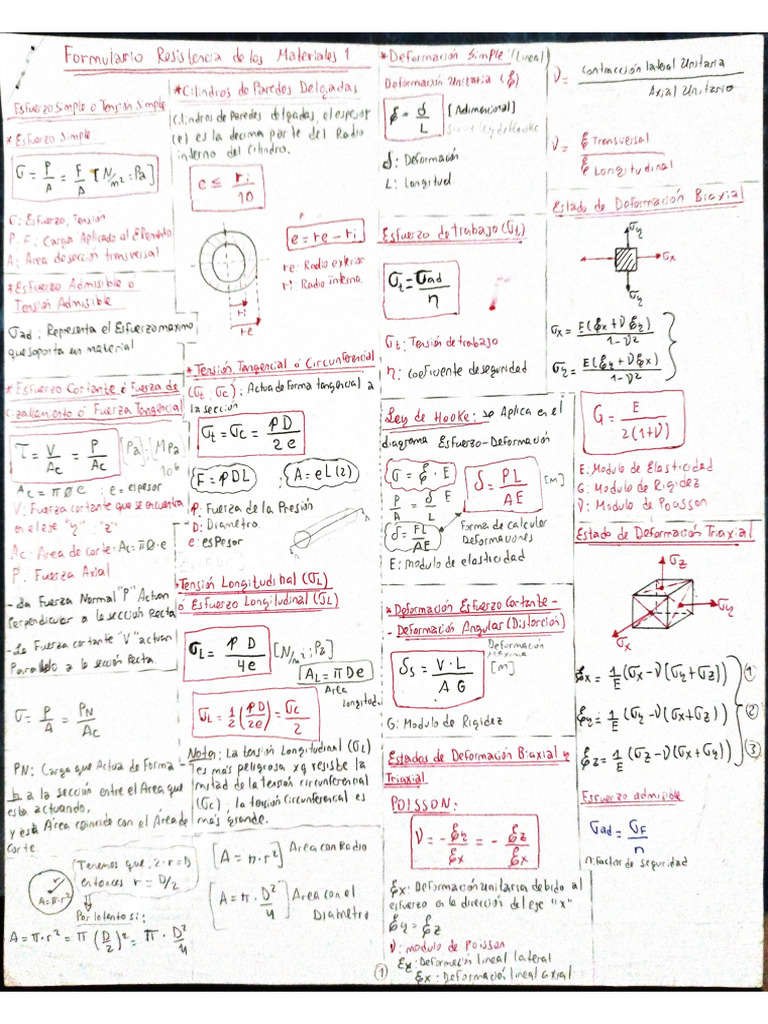 Formulario Resistencia de los Materiales 1
Esfuerzo Simple o Tensión Simple
* Esfuerzo Simple
σ = P/A = F/A [N/m² = Pa]
σ: Esfuerzo, Tensión
P, F: Carga Aplicado al Elemento
A: Area de sección transversal
* Esfuerzo Admisible o
Tensión Admisible
σad: Representa el Esfuerzo maximo
que soporta un material
* Esfuerzo Cortante ó Fuerza de
Cizallamiento ó Fuerza Tangencial
τ = V/Ac = P/Ac [Pa]; [MPa]
10⁶
Ac = π Ø e ; e = espesor
V: Fuerza cortante que se encuentra
en el eje "y" , "z"
Ac: Area de corte: Ac = π Ø · e
P: Fuerza Axial
- La Fuerza Normal "P" Actuan
Perpendicular a la sección Recta
- La Fuerza cortante "V" actuan
Paralelo a la sección Recta.
σ = P/A = PN/Ac
PN: Carga que Actua de Forma
a la sección entre el Area que
esta actuando.
y esta Área coincide con el Área de
Corte.
r
A = π·r²
Tenemos que 2·r = D
entonces r = D/2
Por lo tanto si:
A = π·r² = π (D/2)² = π · D²/4
* Cilindros de Paredes Delgadas
Cilindros de Paredes delgadas, el espesor
(e) es la decima parte del Radio
interno del Cilindro.
e ≤ ri/10
e = re - ri
re: Radio exterior
ri: Radio interno
ri
re
* Tensión, Tangencial ó Circunferencial
(σt; σc): Actua de Forma tangencial a
la sección
σt = σc = PD/2e
F = PDL
A = eL(2)
P: Fuerza de la Presión
D: Diametro
e: espesor
* Tensión Longitudinal (σL)
ó Esfuerzo Longitudinal (σL)
σL = PD/4e [N/m²; Pa]
AL = π D e
Area
Longitud
σL = 1/2 (PD/2e) = σc/2
Nota: La tensión Longitudinal (σL)
es más peligrosa xq resiste la
mitad de la tensión circunferencial
(σc); la tensión circunferencial es
más grande.
[A = π·r²] Area con Radio
[A = π · D²/4] Area con el
Diametro
* Deformación Simple: (Lineal)
Deformación Unitaria (ξ)
ξ = δ/L [Adimencional]
δ: Deformación
L: Longitud
Esfuerzo de trabajo (σt)
σt = σad/η
σt: Tensión de trabajo
η: coeficiente de seguridad
Ley de Hooke: se Aplica en el
diagrama Esfuerzo-Deformación
σ = ξ · E
δ = PL/AE [m]
P/A = δ/L E
δ = FL/AE
Forma de calcular
Deformaciones
E: modulo de elasticidad
* Deformación Esfuerzo Cortante -
- Deformación Angular (Distorción)
δs = V·L/AG
Deformación
Máxima
[m]
G: Modulo de Rigidez
Estados de Deformación Biaxial y
Triaxial
POISSON:
ν = - ξy/ξx = - ξz/ξx
ξx: Deformación unitaria debido al
esfuerzo en la dirección del eje "x"
ξy = ξz
ν: modulo de Poisson
ξy: Deformación lineal lateral
ξx: Deformación lineal axial
1
ν = Contracción lateral Unitaria / Axial Unitario
ν = ξ Transversal / ξ Longitudinal
Estado de Deformación Biaxial
σy
σx
σy
σx = E(ξx + νξy)/1-ν²
σy = E(ξy + νξx)/1-ν²
G = E/2(1+ν)
E: Modulo de Elasticidad
G: Modulo de Rigidez
ν: Modulo de Poasson
Estado de Deformación Triaxial
σz
σy
σx
ξx = 1/E (σx - ν(σy + σz)) 1
ξy = 1/E (σy - ν(σx + σz)) 2
ξz = 1/E (σz - ν(σx + σy)) 3
Esfuerzo admisible
σad = σF/n
n: Factor de seguridad